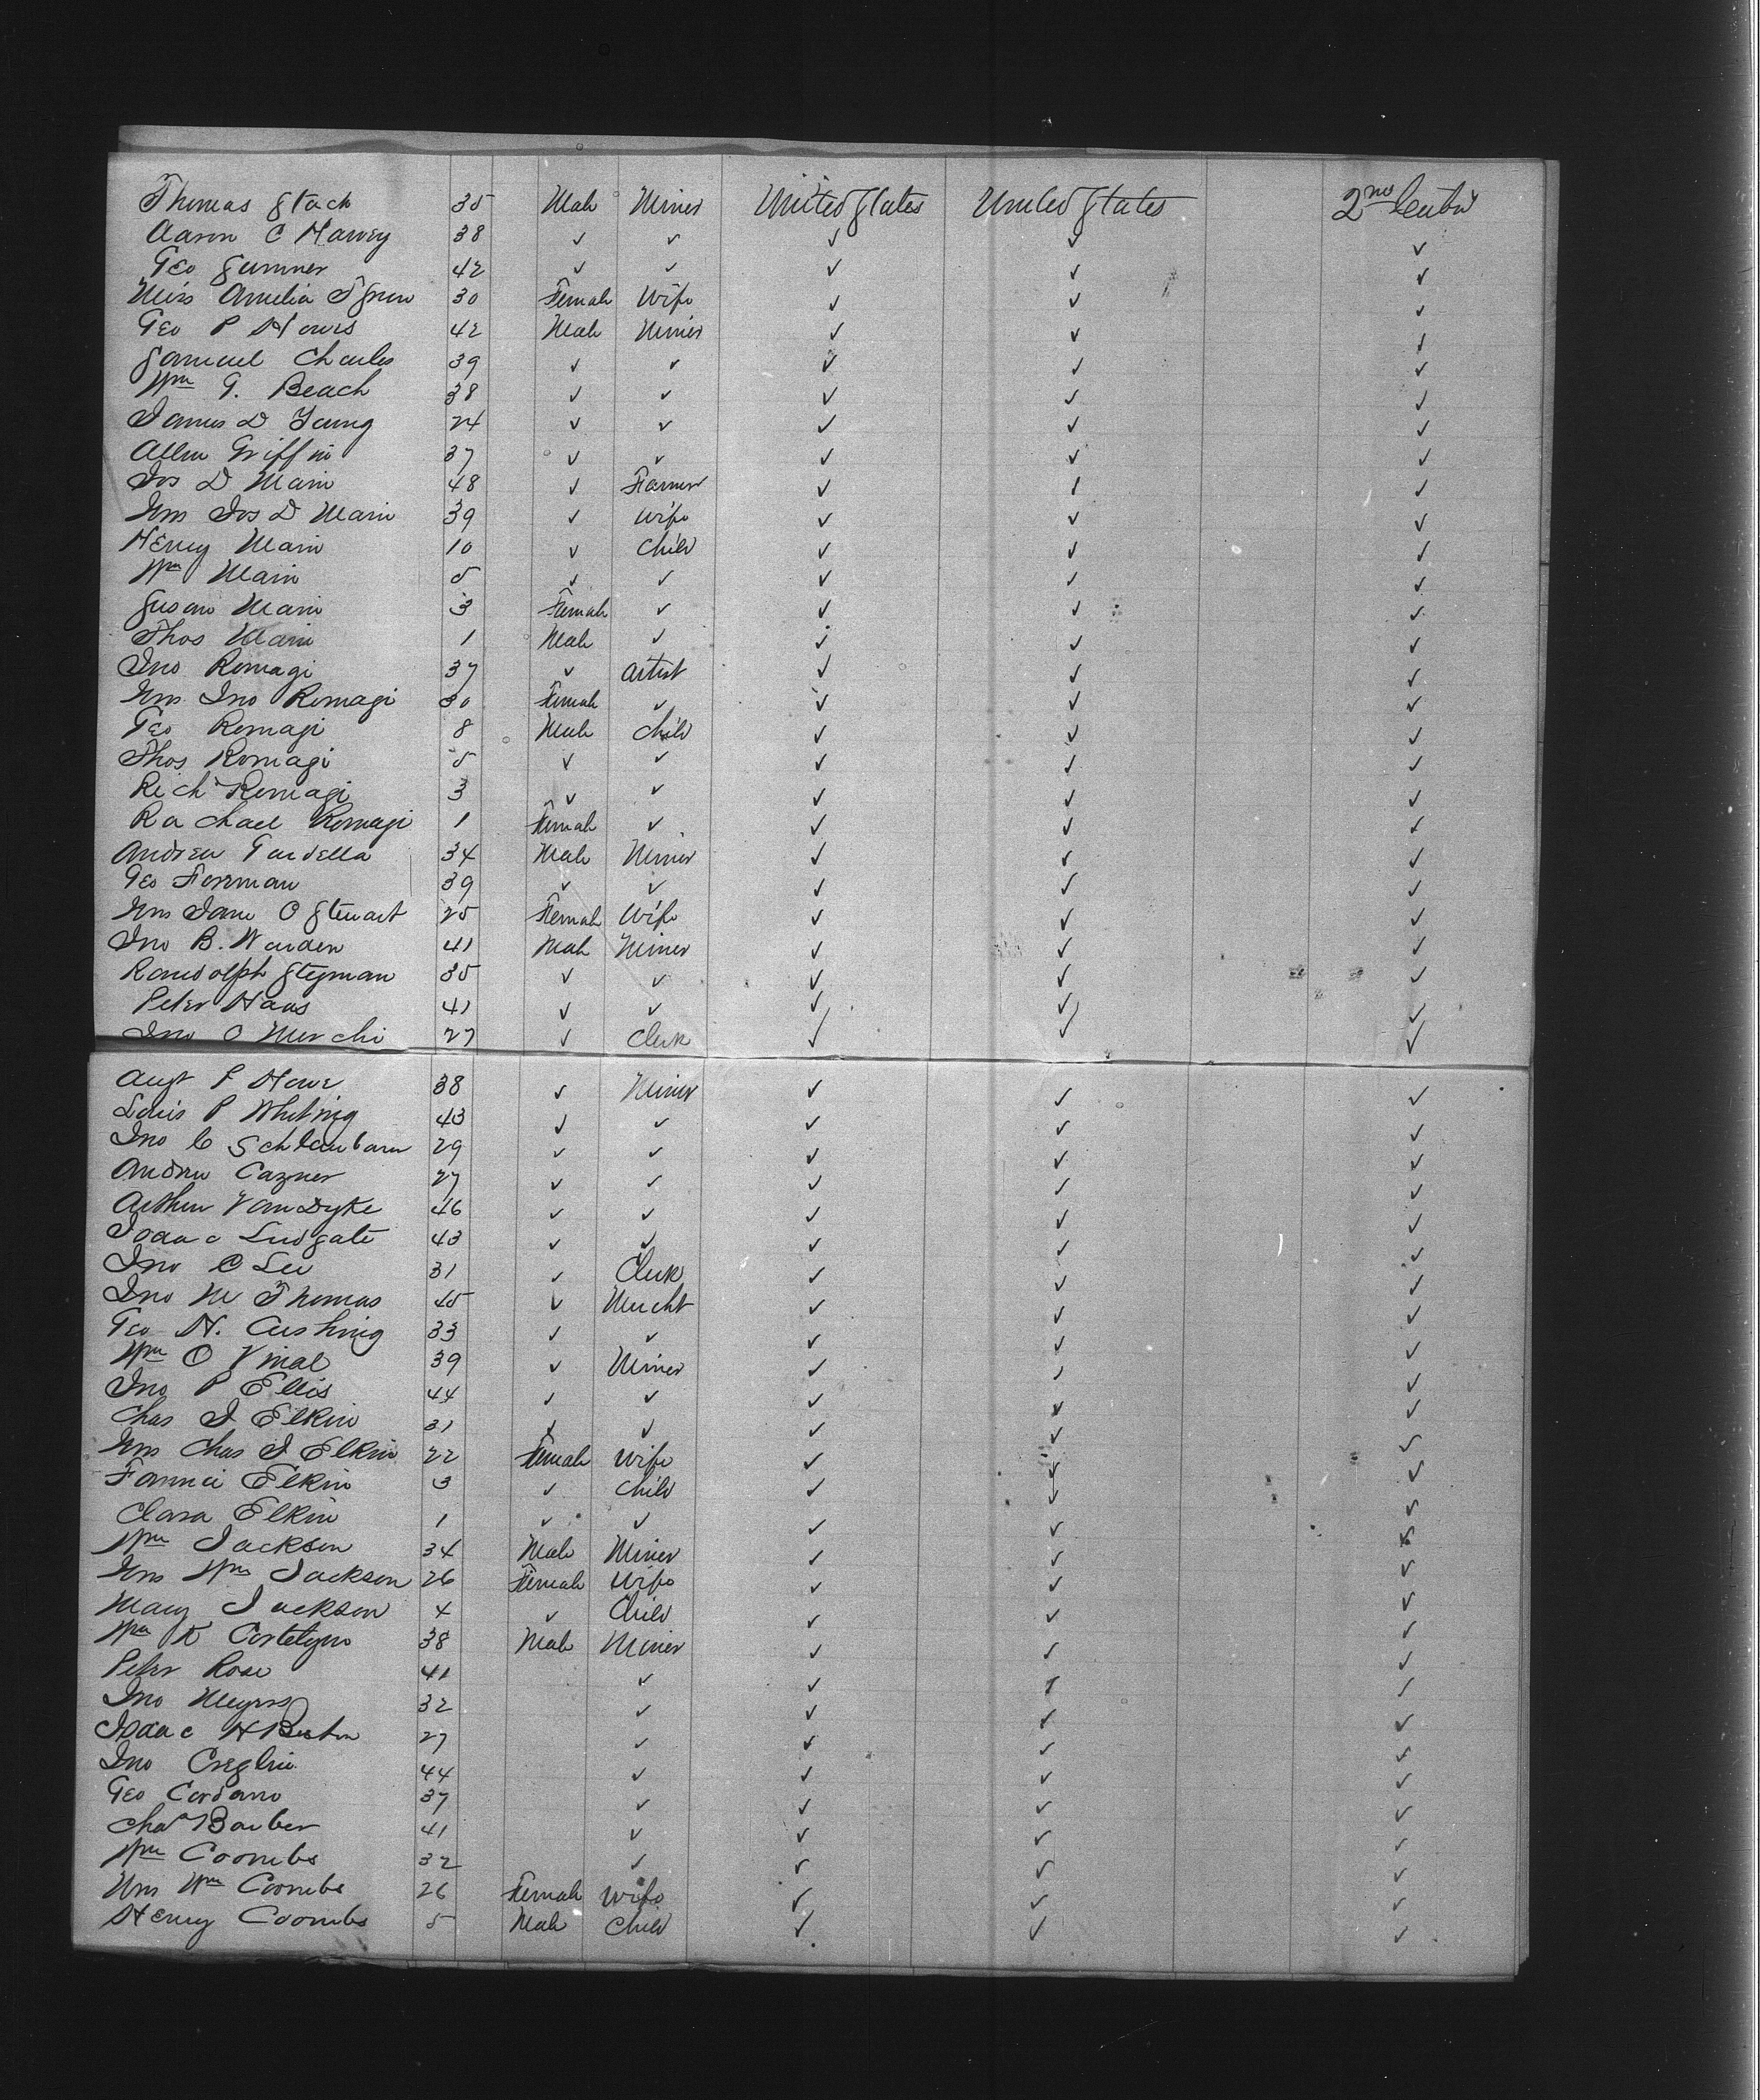 Thomas Stack 35 Male Miner United States United States 2nd Cabin
Aaron C Harvey 38 ✓ ✓ ✓ ✓ ✓
Geo Sumner 42 ✓ ✓ ✓ ✓ ✓
Miss Amelia 30 Female Wife ✓ ✓ ✓
Geo P Howes 42 Male Miner ✓ ✓ ✓
Samuel Charles 39 ✓ ✓ ✓ ✓ ✓
Wm G. Beach 38 ✓ ✓ ✓ ✓ ✓
James D Young 24 ✓ ✓ ✓ ✓ ✓
Allen Griffin 37 ✓ ✓ ✓ ✓ ✓
Jos D Main 48 ✓ Farmer ✓ ✓ ✓
Mrs Jos D Main 39 ✓ Wife ✓ ✓ ✓
Henry Main 10 ✓ Child ✓ ✓ ✓
Wm Main 5 ✓ ✓ ✓ ✓ ✓
Susan Main 3 Female ✓ ✓ ✓ ✓
Thos Main 1 Male ✓ ✓ ✓ ✓
Jno Romagi 37 ✓ Artist ✓ ✓ ✓
Mrs Jno Romagi 30 Female ✓ ✓ ✓ ✓
Geo Romagi 8 Male Child ✓ ✓ ✓
Thos Romagi 5 ✓ ✓ ✓ ✓ ✓
Richd Romagi 3 ✓ ✓ ✓ ✓ ✓
Rachael Romagi 1 Female ✓ ✓ ✓ ✓
Andrew Gardella 34 Male Miner ✓ ✓ ✓
Geo Forman 39 ✓ ✓ ✓ ✓ ✓
Mrs Jane O Stewart 25 Female Wife ✓ ✓ ✓
Jno B. Warden 41 Male Miner ✓ ✓ ✓
Randolph Stegman 35 ✓ ✓ ✓ ✓ ✓
Peter Haas 41 ✓ ✓ ✓ ✓ ✓
Jno O Merchi 27 ✓ Clerk ✓ ✓ ✓
Augt P Howe 38 ✓ Miner ✓ ✓ ✓
Louis P Whiting 43 ✓ ✓ ✓ ✓ ✓
Jno C 29 ✓ ✓ ✓ ✓ ✓
Andrew Cazner 27 ✓ ✓ ✓ ✓ ✓
Arthur VanDyke 46 ✓ ✓ ✓ ✓ ✓
Isaac Ludgate 43 ✓ ✓ ✓ ✓ ✓
Jno C Lee 31 ✓ Clerk ✓ ✓ ✓
Jno M Thomas 45 ✓ Mercht ✓ ✓ ✓
Geo H. Cushing 33 ✓ ✓ ✓ ✓ ✓
Wm O Vinal 39 ✓ Miner ✓ ✓ ✓
Jno P Ellis 44 ✓ ✓ ✓ ✓ ✓
Chas J Elkin 31 ✓ ✓ ✓ ✓ ✓
Mrs Chas J Elkin 22 Female Wife ✓ ✓ ✓
Fannie Elkin 3 ✓ Child ✓ ✓ ✓
Clara Elkin 1 ✓ ✓ ✓ ✓ ✓
Wm Jackson 34 Male Miner ✓ ✓ ✓
Mrs Wm Jackson 26 Female Wife ✓ ✓ ✓
Mary Jackson 4 ✓ Child ✓ ✓ ✓
Wm K Cortelyou 38 Male Miner ✓ ✓ ✓
Peter Rose 41 ✓ ✓ ✓ ✓
Jno Meyers 32 ✓ ✓ ✓ ✓
Isaac H 27 ✓ ✓ ✓ ✓
Jno Creglin 44 ✓ ✓ ✓ ✓
Geo Cordano 37 ✓ ✓ ✓ ✓
Chas Barber 41 ✓ ✓ ✓ ✓
Wm Coombs 32 ✓ ✓ ✓ ✓
Mrs Wm Coombs 26 Female Wife ✓ ✓ ✓
Henry Coombs 5 Male Child ✓ ✓ ✓